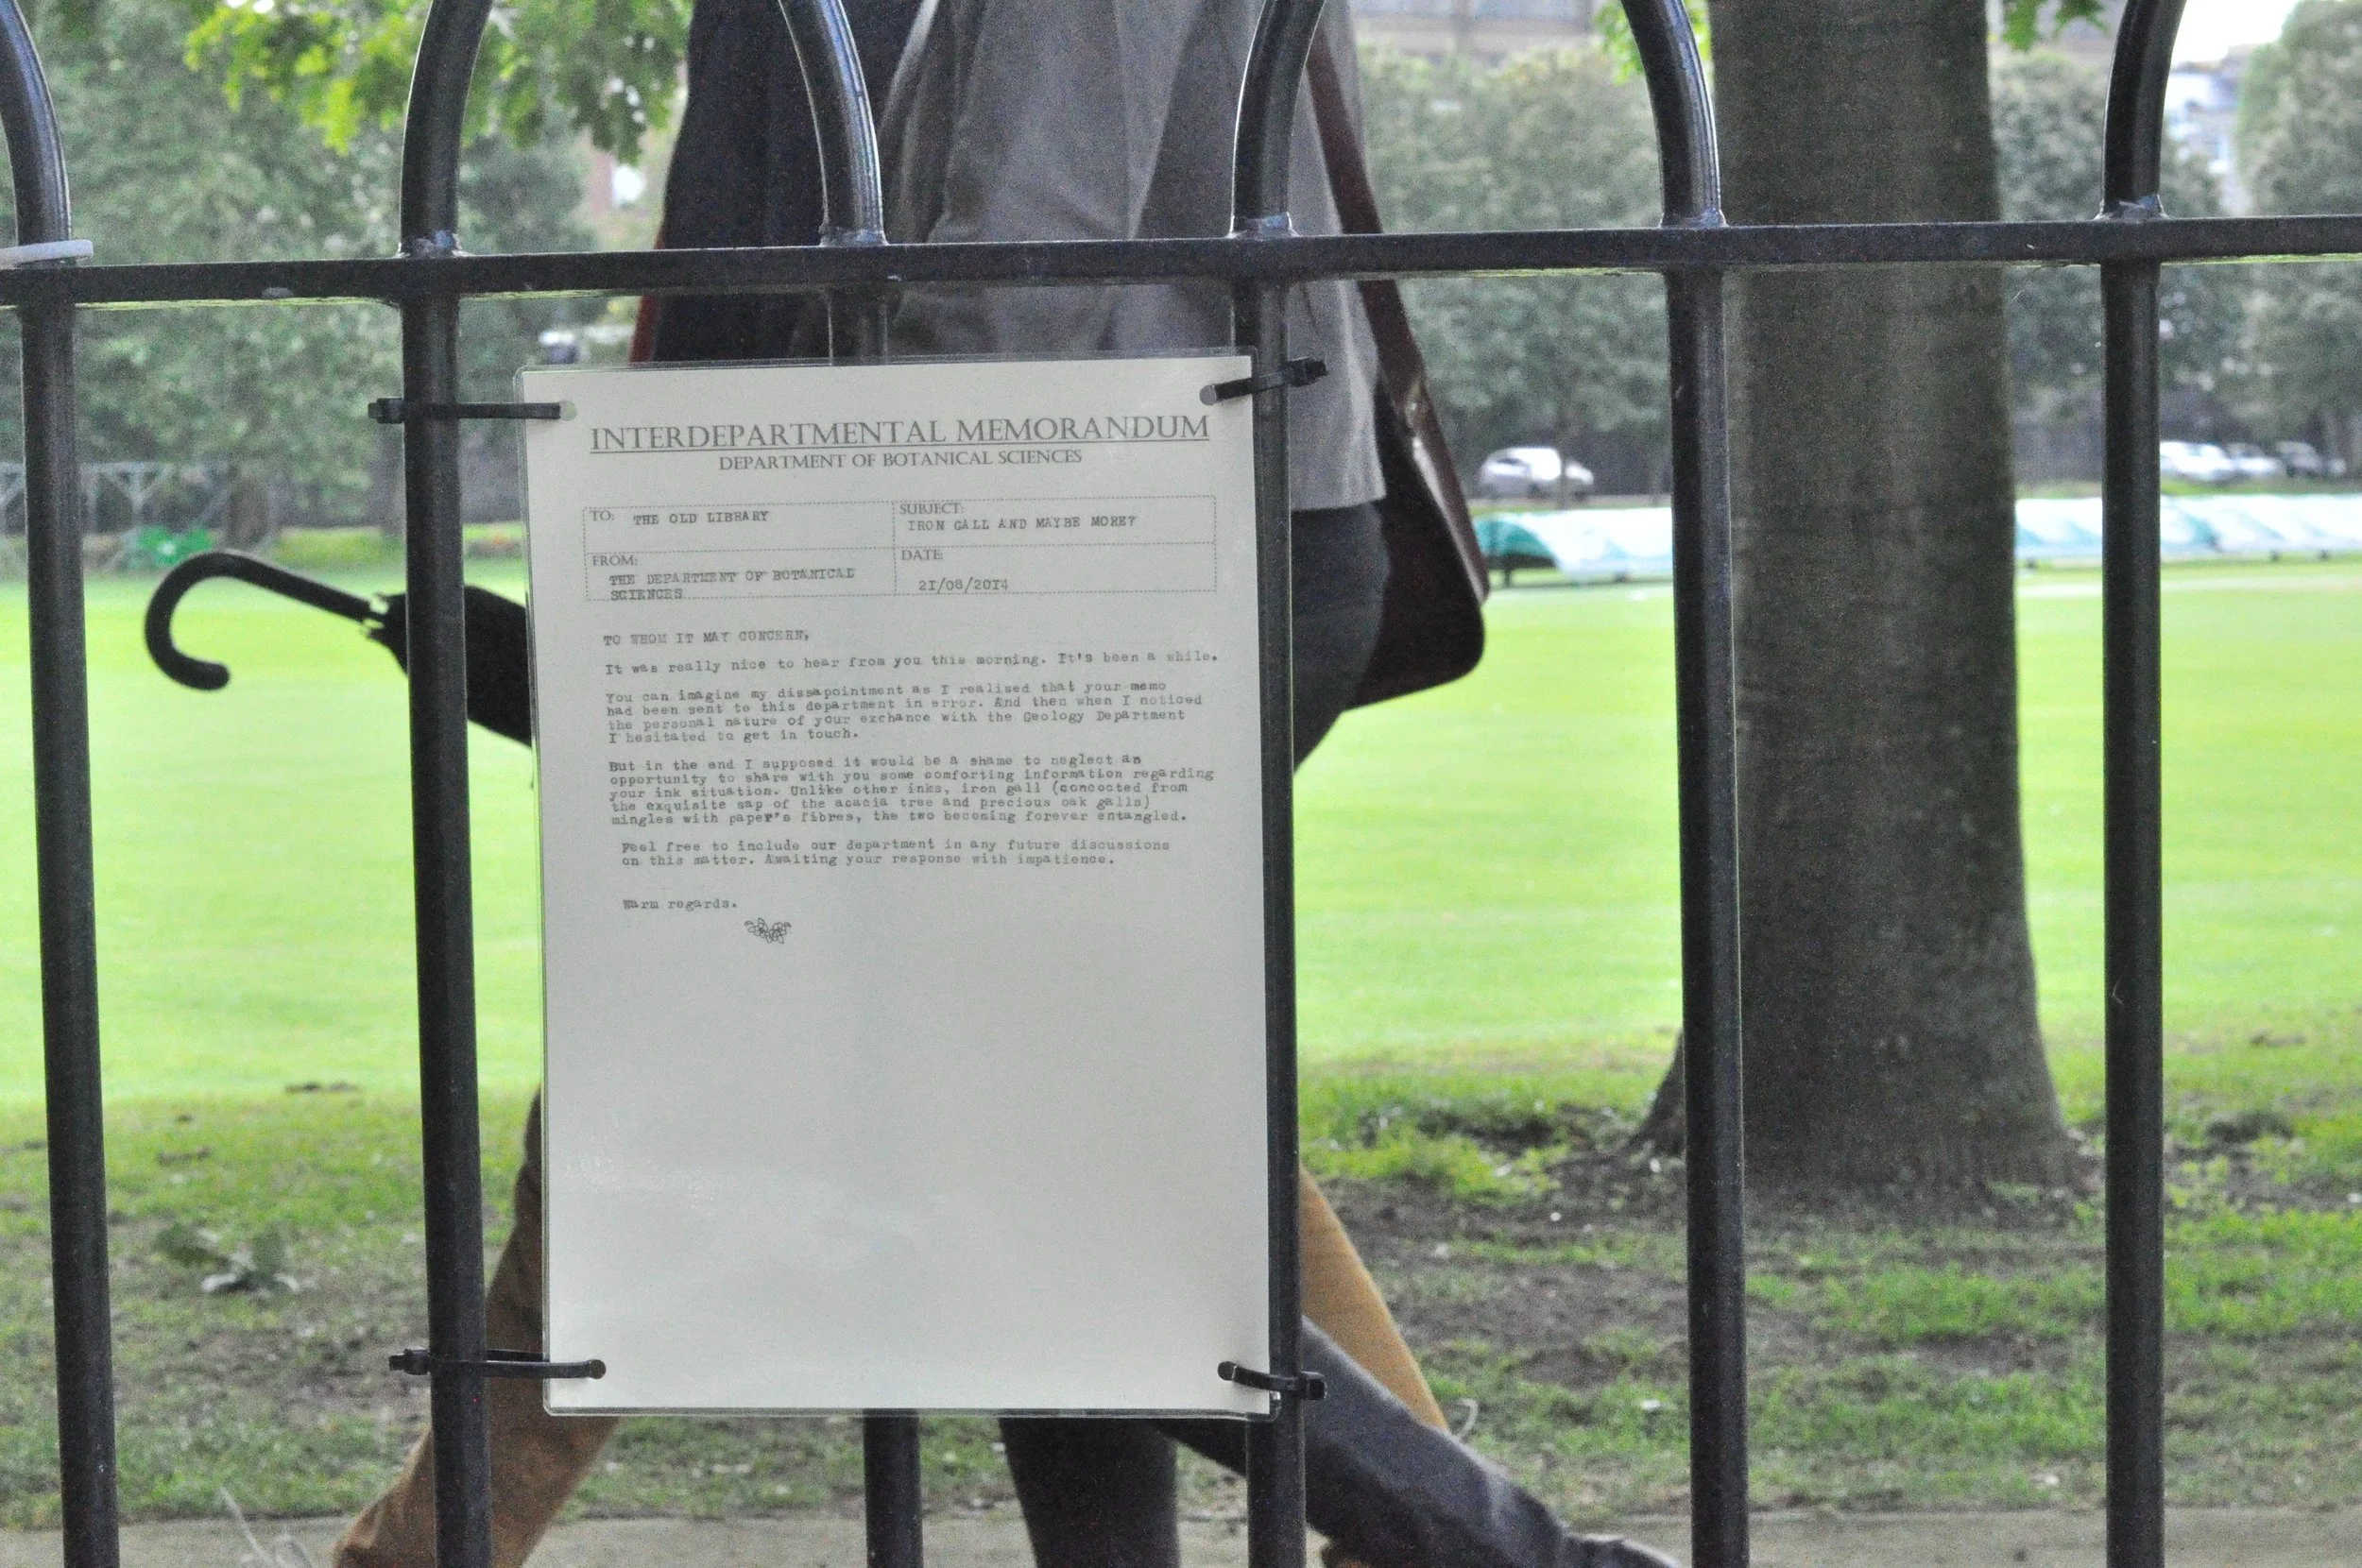 INTERDEPARTMENTAL MEMORANDUM
DEPARTMENT OF BOTANICAL SCIENCES
TO: THE OLD LIBRARY
SUBJECT: IRON GALL AND MAYBE MORE?
FROM: THE DEPARTMENT OF BOTANICAL
SCIENCES
DATE: 21/08/2014
TO WHOM IT MAY CONCERN,
It was really nice to hear from you this morning. It's been a while.
You can imagine my dissapointment as I realised that your memo
had been sent to this department in error. And then when I noticed
the personal nature of your exchance with the Geology Department
I hesitated to get in touch.
But in the end I supposed it would be a shame to neglect an
opportunity to share with you some comforting information regarding
your ink situation. Unlike other inks, iron gall (concocted from
the exquisite sap of the acacia tree and precious oak galls)
mingles with paper's fibres, the two becoming forever entangled.
Feel free to include our department in any future discussions
on this matter. Awaiting your response with impatience.
Warm regards.